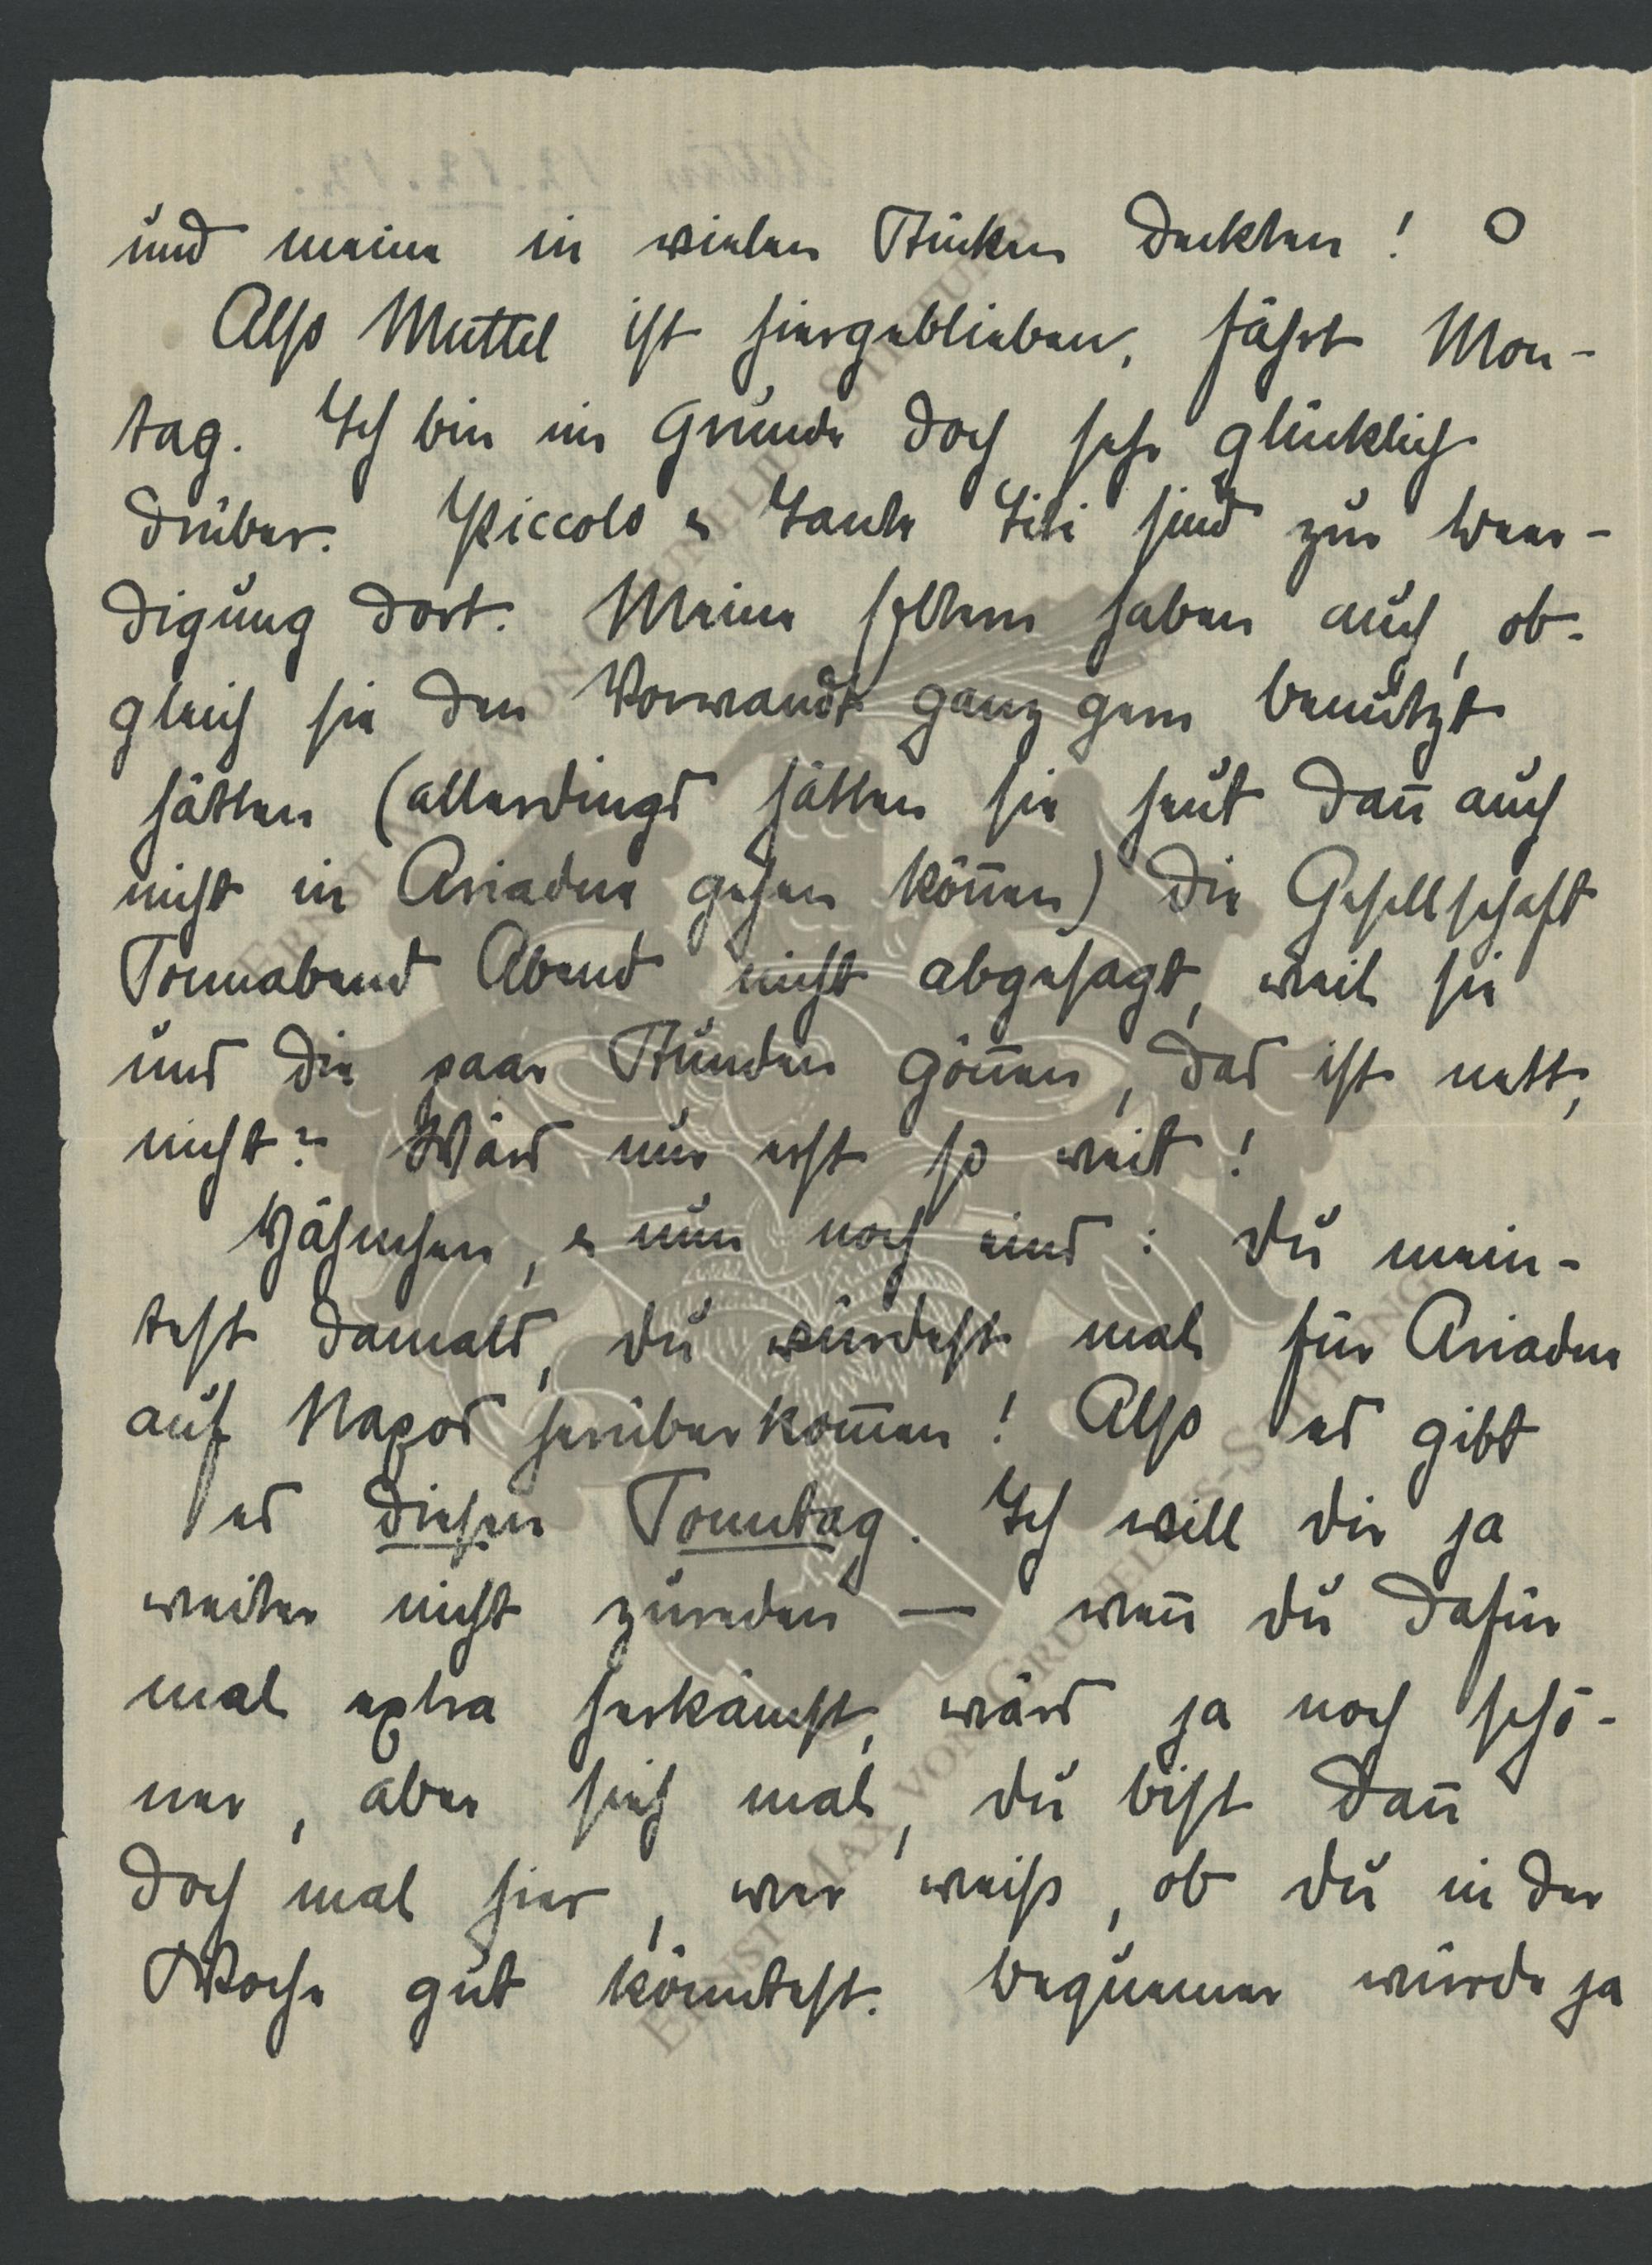 und meine in vielen Stücken deckten! O
Also Muttel ist hiergeblieben, fährt Mon-
tag. Ich bin im Grunde doch sehr glücklich
drüber. Piccolo & Tante Titi sind zur Beer-
digung dort. Meine Eltern haben auch, ob-
gleich sie den Vorwandt ganz gern benützt
hätten (allerdings hätten sie heut dan̄ auch
nicht in Ariadne gehen kön̄en) die Gesellschaft
Sonnabend Abend nicht abgesagt, weil sie
uns die paar Stunden gön̄en, das ist nett,
nicht? Wärs nur erst so weit!
Hähnchen, & nun noch eins: Du mein-
test damals, du würdest mal für Ariadne
auf Naxos herüberkom̄en! Also es gibt
es diesen Sonntag. Ich will dir ja
weiter nicht zureden — wen̄ du dafür
mal extra herkämst, wärs ja noch schö-
ner, aber sieh mal, du bist dan̄
doch mal hier, wer weiß, ob du in der
Woche gut könntest. Bequemer würde ja
ERNST MAX VON GRUNELIUS-STIFTUNG
ERNST MAX VON GRUNELIUS-STIFTUNG